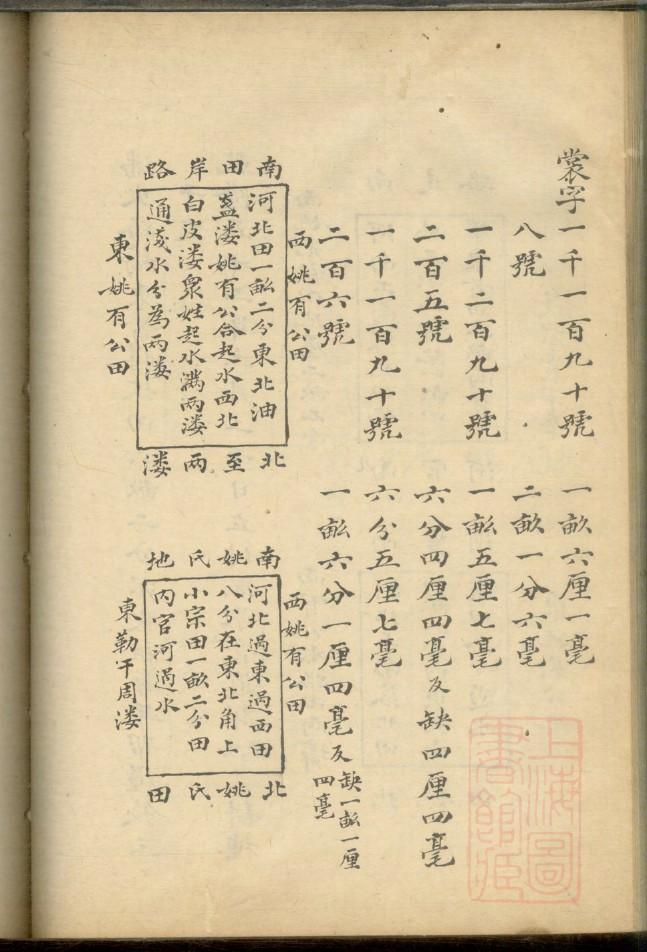 裳字一千一百九十號　一畝六厘一毫
八號　二畝一分六毫
一千二百九十號　一畝五厘七毫
二百五號　六分四厘四毫及缺四厘四毫
一千一百九十號　六分五厘七毫
二百六號　一畝六分一厘四毫及缺一畝一厘四毫
西姚有公田
南田岸路
河北田一畝二分東北油
盞溇姚有公合起水西北
白皮溇眾姓起水滿两溇
通淺水分為两溇
北至两溇
東姚有公田
西姚有公田
南姚氏地
河北過東過西田
八分在東北角上
小宗田一畝二分田
内官河過水
北姚氏田
東勒干周溇
上海圖
書館藏